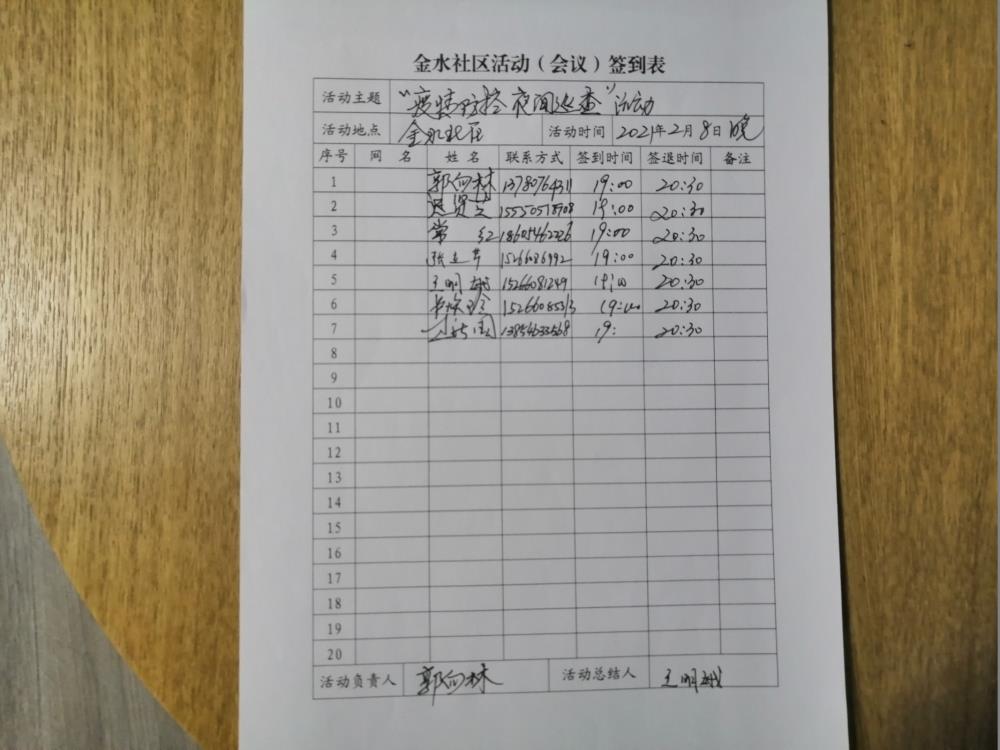 金水社区活动（会议）签到表
活动主题 “疫情防控夜间巡查”活动
活动地点 金水社区 活动时间 2021年2月8日晚
序号 网 名 姓 名 联系方式 签到时间 签退时间 备注
1 郭向林 19:00 20:30
2 19:00 20:30
3 常红 19:00 20:30
4 19:00 20:30
5 王明娥 15266081249 19:00 20:30
6 19:00 20:30
7 13854633568 19: 20:30
8
9
10
11
12
13
14
15
16
17
18
19
20
活动负责人 郭向林 活动总结人 王明娥